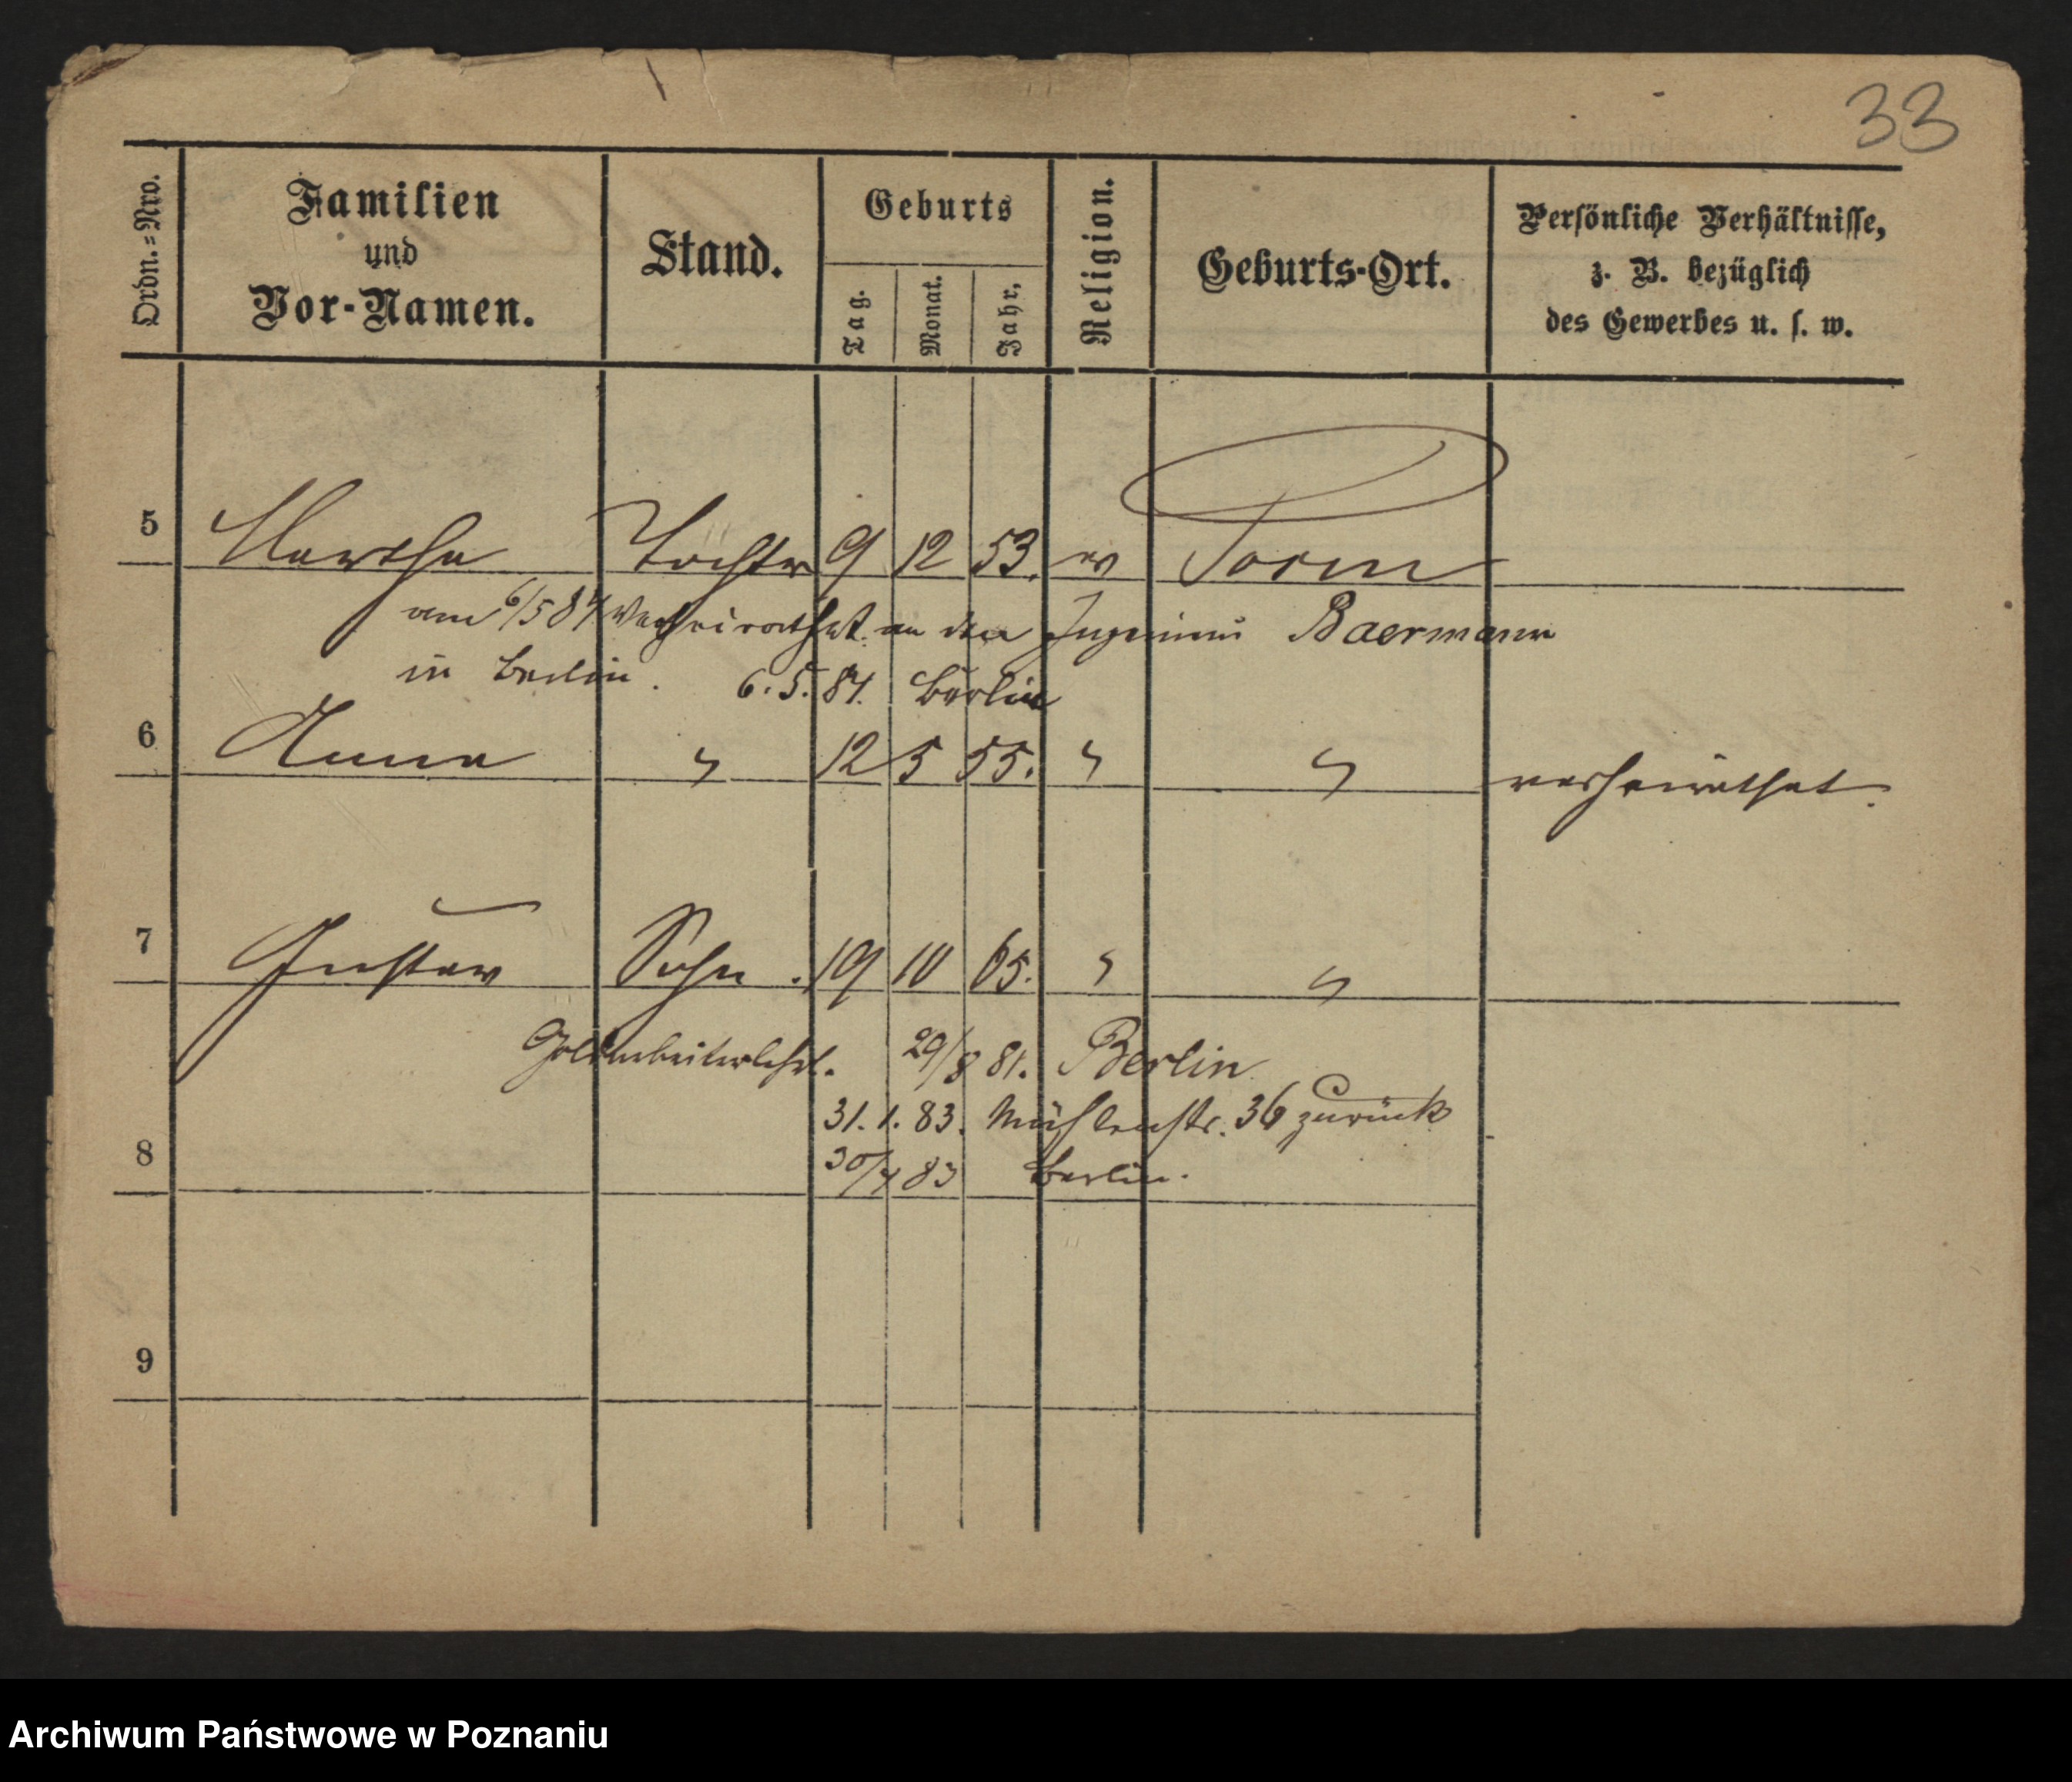 33
Ordn.=Nro.
Familien
und
Vor-Namen.
Stand.
Geburts
Tag.
Monat.
Jahr.
Religion.
Geburts-Ort.
Persönliche Verhältnisse,
z. B. bezüglich
des Gewerbes u. s. w.
5 Martha Tochter 9 12 53. ev Posen
am 6/5 84 verheirathet an den Ingenieur Baermann
in Berlin. 6. 5. 84. Berlin
6 Anna " 12 5 55. " " verheirathet.
7 Gustav Sohn. 19 10 65. " "
Goldarbeiterlehrl. 29/8 81. Berlin
31. 1. 83. Mühlenstr. 36 zurück
8
30/4 83 Berlin.
9
Archiwum Państwowe w Poznaniu